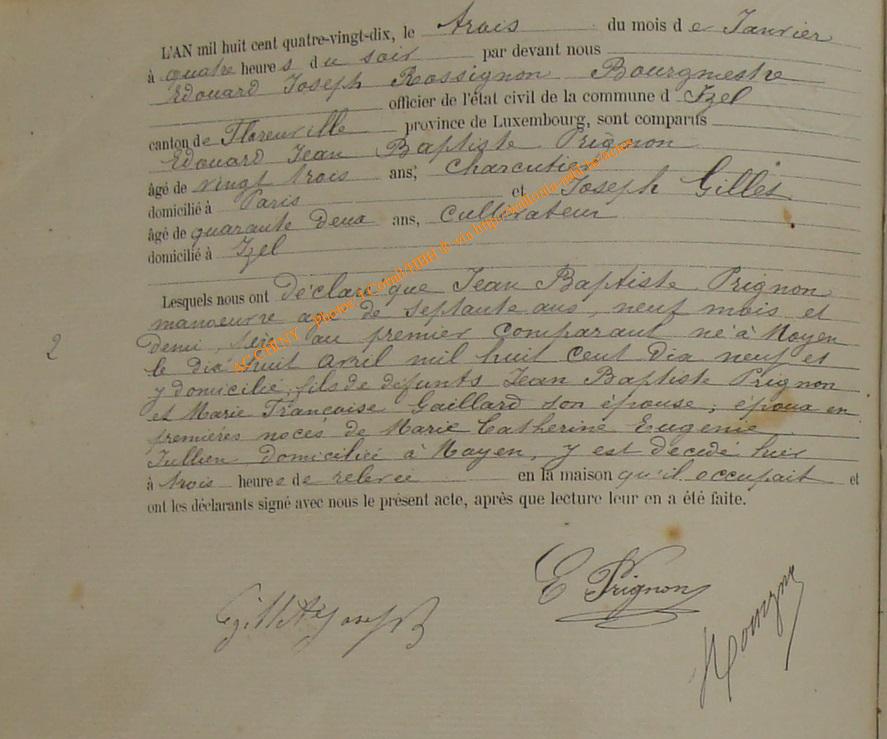 L'AN mil huit cent quatre-vingt-dix, le trois du mois de Janvier
à quatre heures du soir par devant nous
Edouard Joseph Rossignon Bourgmestre
officier de l'état civil de la commune d Izel
canton de Florenville province de Luxembourg, sont comparus
Edouard Jean Baptiste Prignon
âgé de vingt trois ans, charcutier
domicilié à Paris et Joseph Gillet
âgé de quarante deux ans, cultivateur
domicilié à Izel
Lesquels nous ont déclaré que Jean Baptiste Prignon
manoeuvre âgé de septante ans, neuf mois et
demi, père au premier comparant né à Moyen
2
le dix huit avril mil huit cent dix neuf et
y domicilié, fils de défunts Jean Baptiste Prignon
et Marie Françoise Gaillard son épouse, époux en
premières noces de Marie Catherine Eugenie
Jullien domiciliée à Moyen, y est décédé hier
à trois heures de relevée en la maison qu'il occupait et
ont les déclarants signé avec nous le présent acte, après que lecture leur en a été faite.
E Prignon
Gillet Joseph